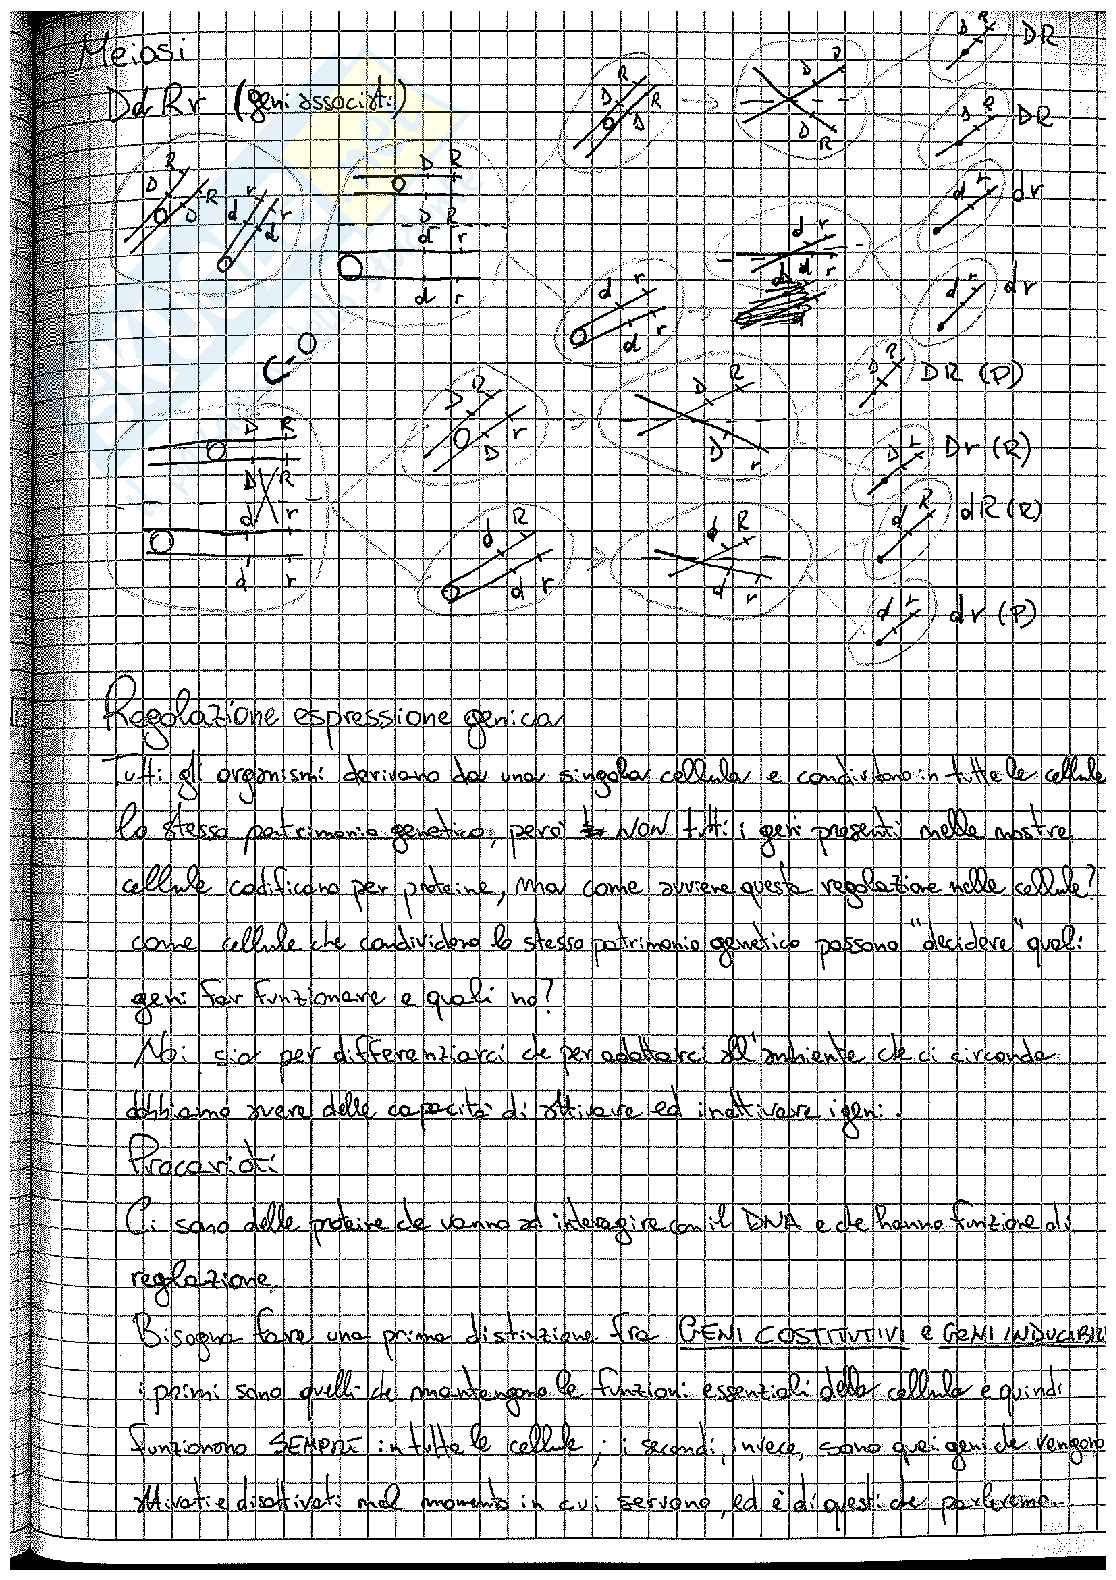 Meiosi
Dd Rr (geni associati)
D R
D R
d r
d r
D R
D R
d r
d r
D R
D R
D D
D R
D R DR
D R DR
d r dr
d r dr
d r
d r
d r
d r
C-O
D R
D R
d r
d r
D R
D r
D R
D r
d R
d r
d R
d r
D R DR (P)
D r Dr (R)
d R dR (R)
d r dr (P)
Regolazione espressione genica
Tutti gli organismi derivano da una singola cellula e condividono in tutte le cellule
lo stesso patrimonio genetico, però NON tutti i geni presenti nelle nostre
cellule codificano per proteine, ma come avviene questa regolazione nelle cellule?
come cellule che condividono lo stesso patrimonio genetico possono "decidere" quali
geni far funzionare e quali no?
Noi, sia per differenziarci che per adattarci all'ambiente che ci circonda
dobbiamo avere delle capacità di attivare ed inattivare i geni.
Procarioti
Ci sono delle proteine che vanno ad interagire con il DNA e che hanno funzione di
reglazione.
Bisogna fare una prima distinzione fra GENI COSTITUTIVI e GENI INDUCIBILI
i primi sono quelli che mantengono le funzioni essenziali della cellula e quindi
funzionono SEMPRE in tutte le cellule; i secondi, invece, sono quei geni che vengono
attivati e disattivati nel momento in cui servono, ed è di questi che parleremo.